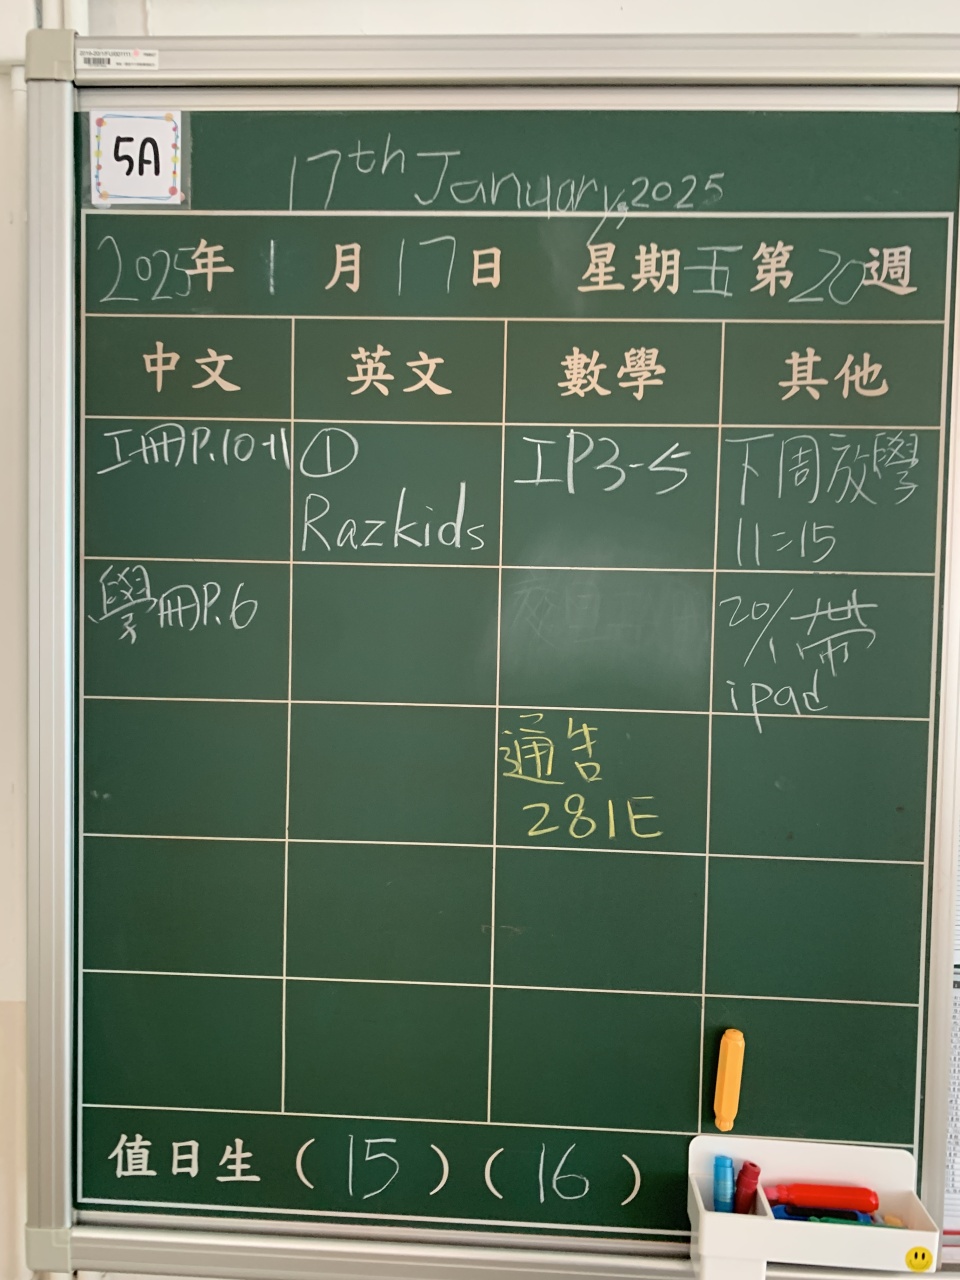 5A
17th January, 2025
2025年1月17日 星期五第20週
中文 英文 數學 其他
工冊P.10-11 ① Razkids 工P3-5 下周放學 11:15
學冊P.6 20/1帶 ipad
通告 281E
值日生 (15) (16)